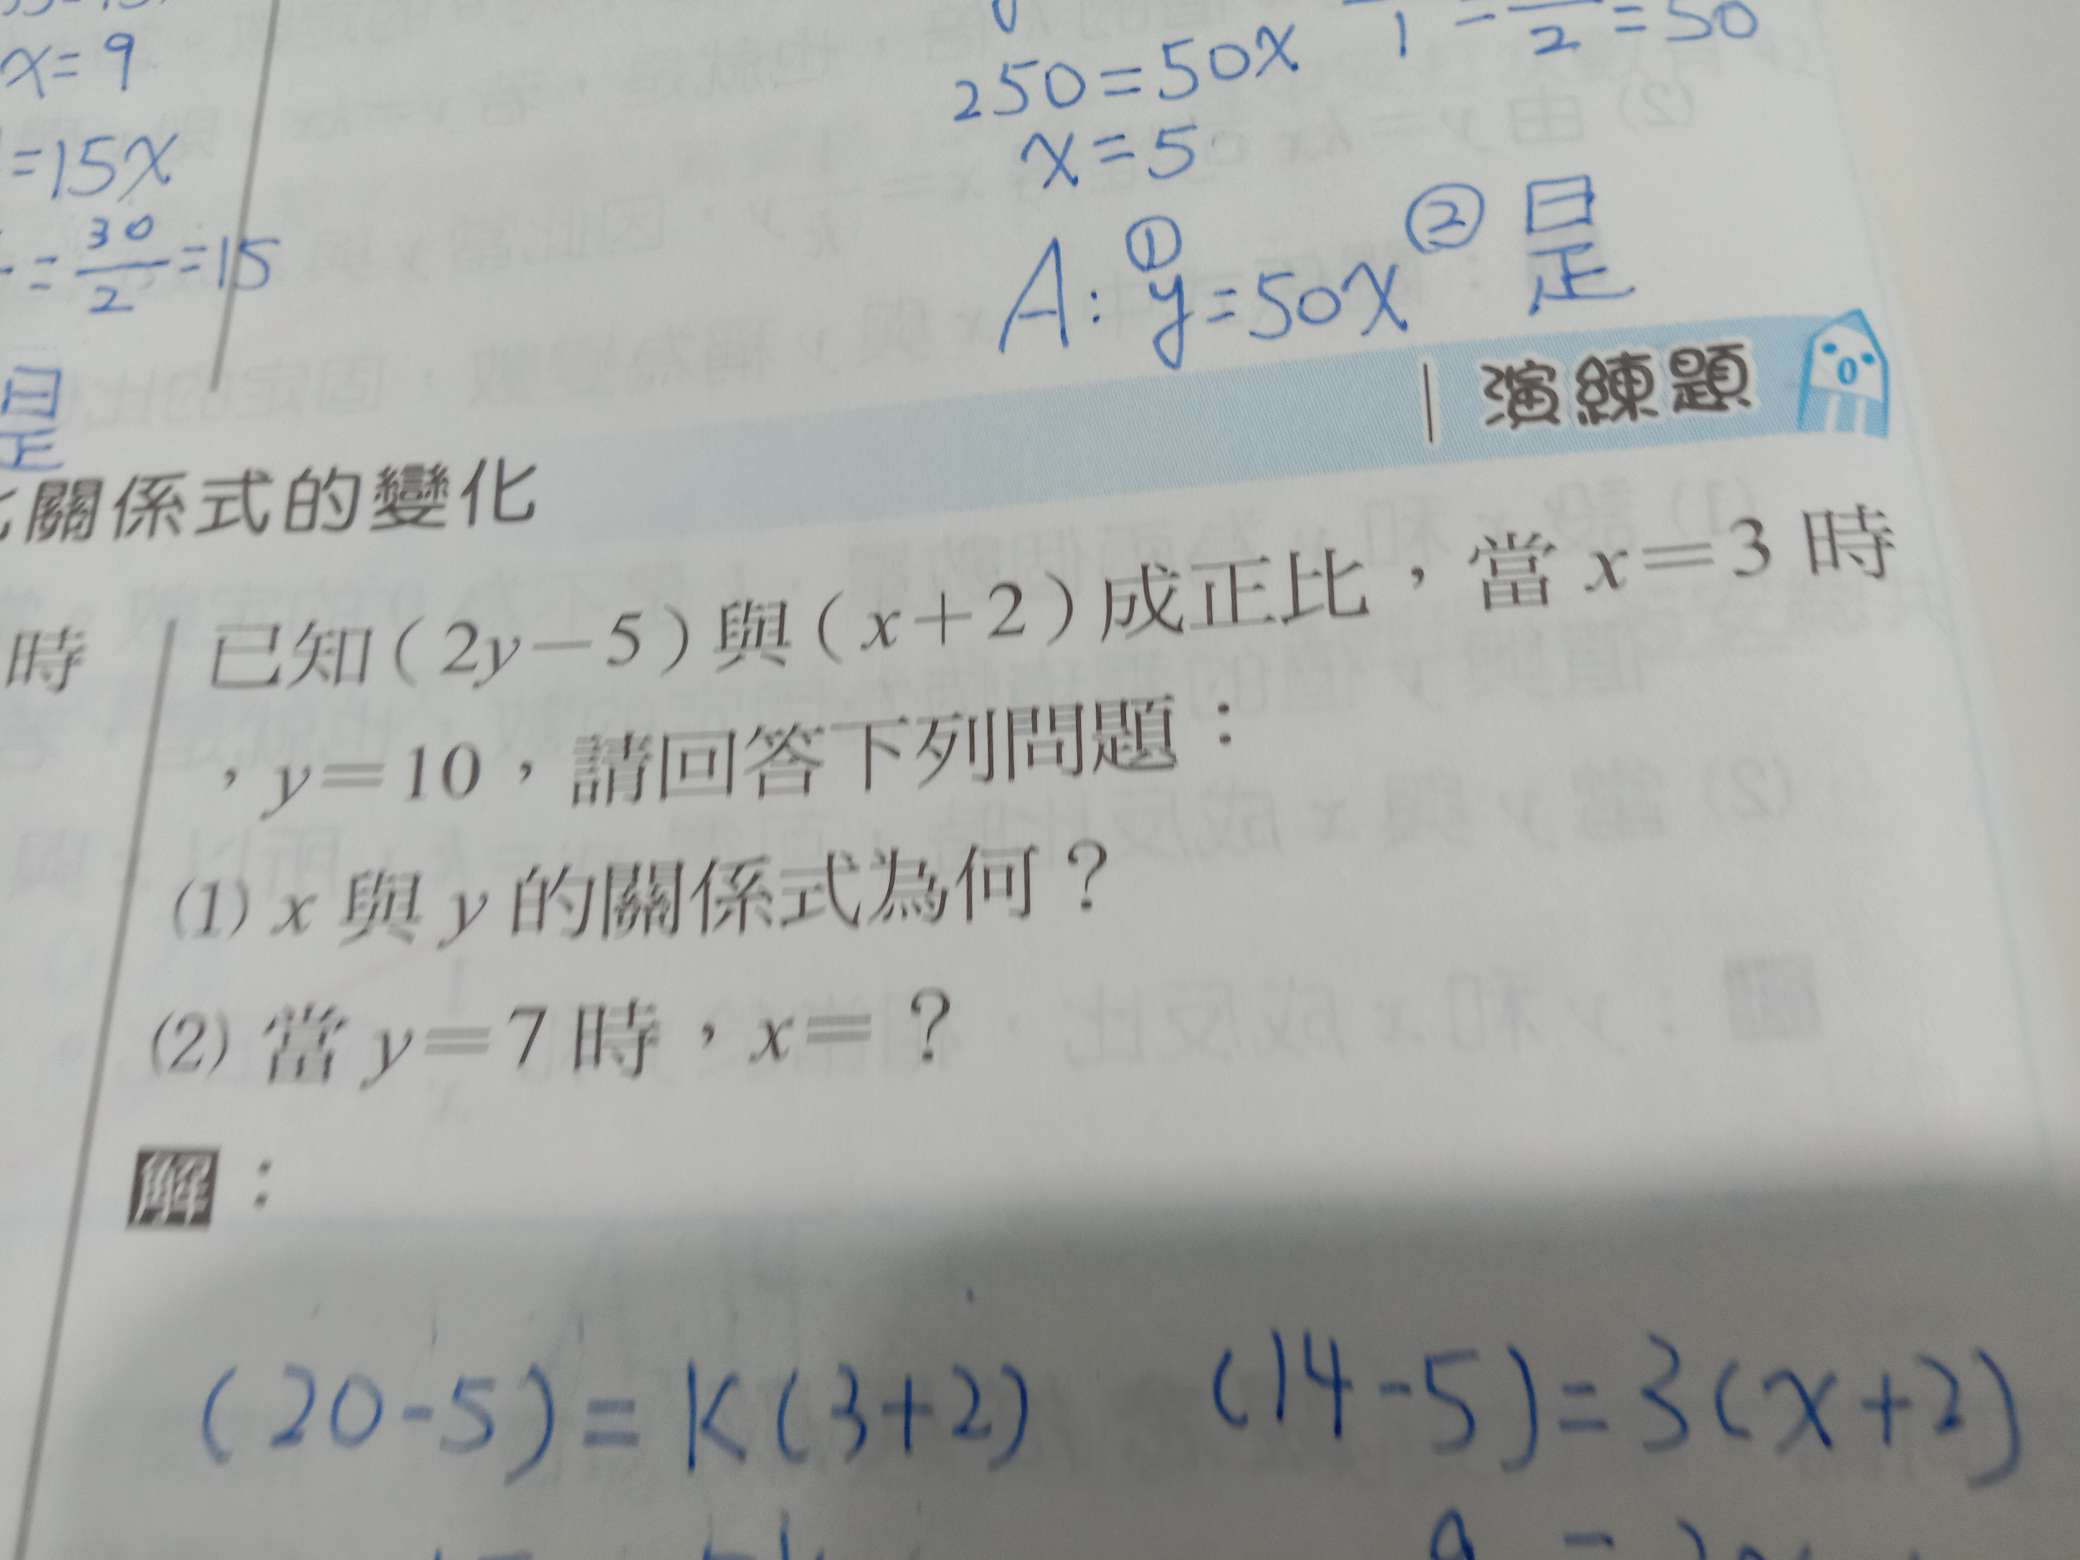 x=9
=15x
=30/2=15
是
250=50x
1 = 2 =50
x=5
A: ①y=50x ②是
演練題
關係式的變化
時
已知(2y-5)與(x+2)成正比，當x=3時
，y=10，請回答下列問題：
(1) x與y的關係式為何？
(2) 當y=7時，x=？
解：
(20-5)=K(3+2)
(14-5)=3(x+2)